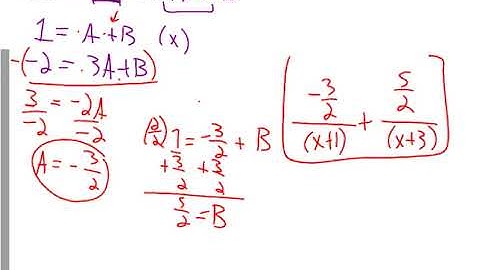 1 = A + B (x)
-(-2 = 3A + B)
3/-2 = -2A/-2
A = -3/2
(2/2) 1 = -3/2 + B
+3/2 +3/2
5/2 = B
[(-3/2)/(x+1) + (5/2)/(x+3)]